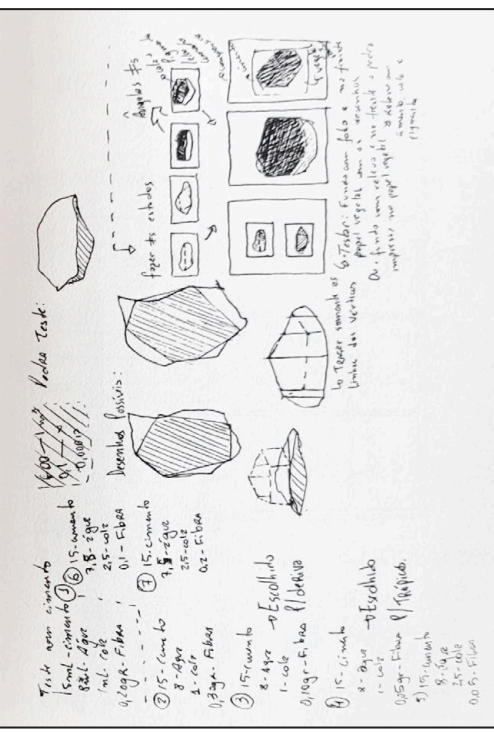 Teste com cimento
15ml-cimento ①
8ml-Água
1ml-cola
0,20gr-Fibra
② 15-cimento
8-Água
1-cola
0,3gr-Fibras
③ 15-cimento
8-água
1-cola
0,10gr-Fibra
→ Escolhido
p/ deriva
④ 15-cimento
8-água
1-cola
0,05gr-Fibra
→ Escolhido
p/ Trópico.
5) 15-cimento
8-água
2,5-cola
0.05-Fibra
⑥ 15-cimento
7,5-água
2,5-cola
0.1-Fibra
⑦ 15-cimento
7,5-água
2,5-cola
0.2-Fibra
Pedra Teste:
Desenhos Possíveis:
fazer +s estudos
Ângulos +s
↳ Traçar somando as
linhas dos vértices
6-Testar: Fundo com foto e na frente
papel vegetal com os desenhos
Ou fundo com relevo e na frente a pedra
impressa no papel vegetal
cimento cola e
pigmento